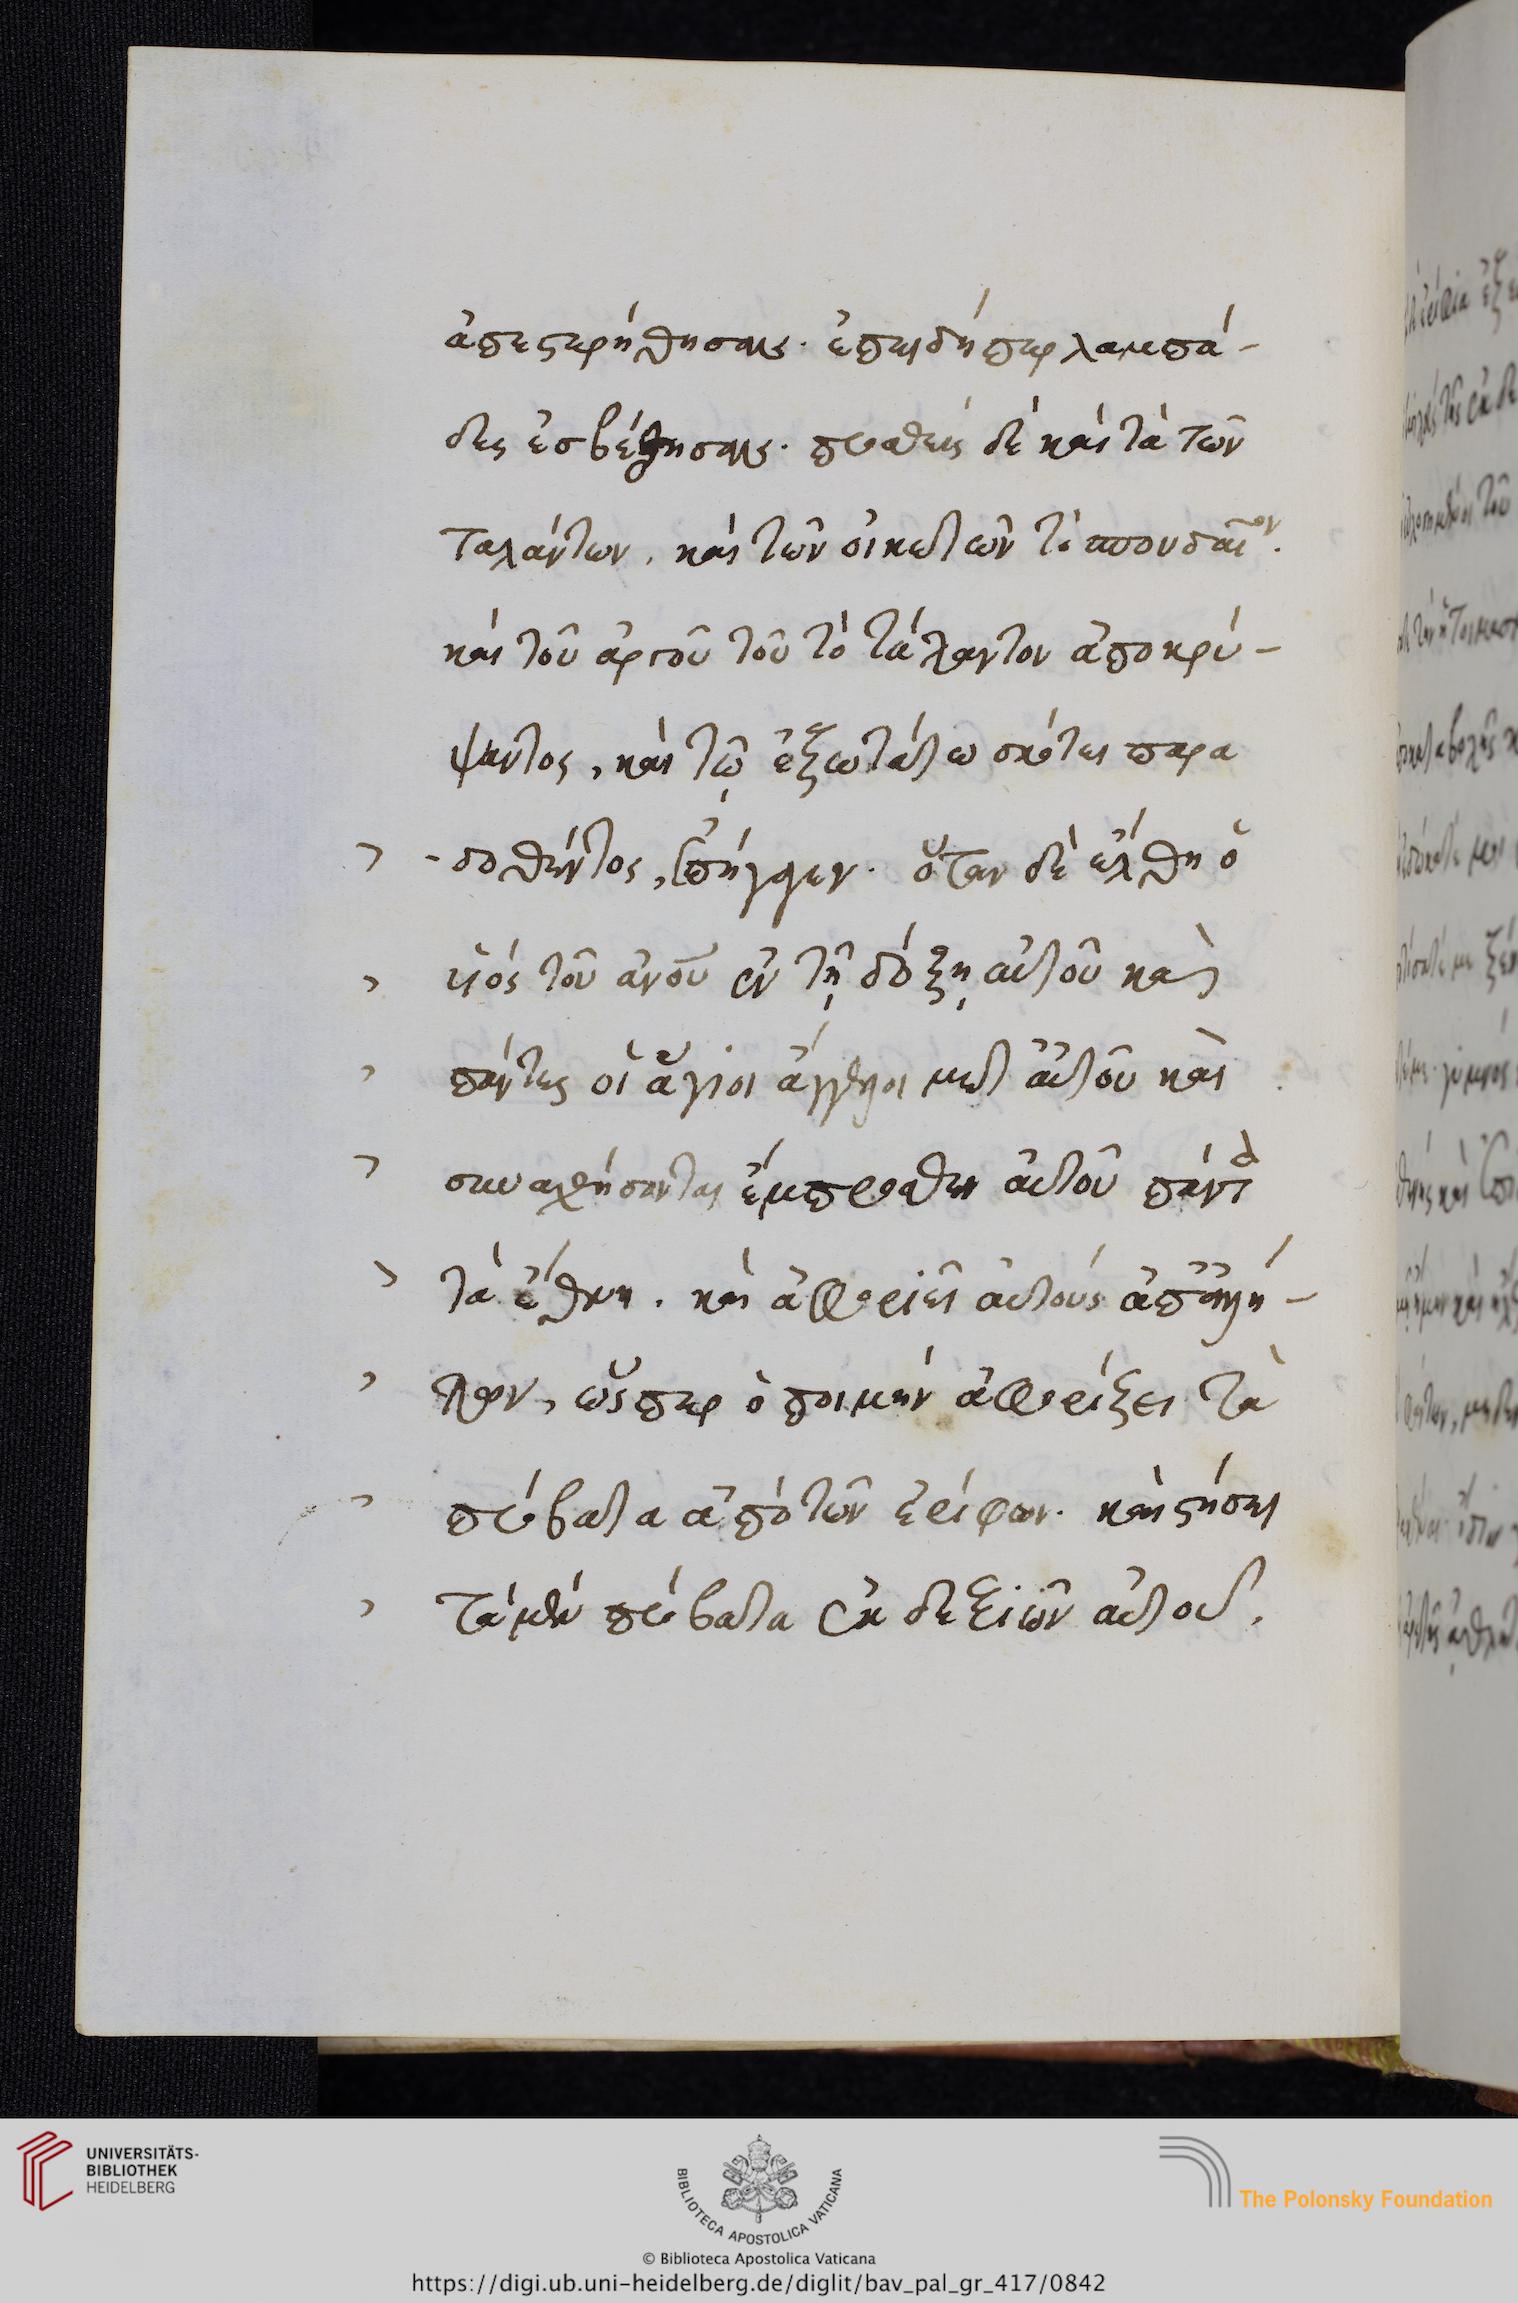 ἀπεστερήθησαν. ἐπειδήπερ λαμπά-
δες ἐσβέσθησαν. προσθεὶς δὲ καὶ τὰ τῶν
ταλάντων, καὶ τῶν οἰκετῶν τὸ σπουδαῖον.
καὶ τοῦ ἀργοῦ τοῦ τὸ τάλαντον ἀποκρύ-
ψαντος, καὶ τῷ ἐξωτάτω σκότει παρα
-δοθέντος, ἐπήγαγεν. ὅταν δὲ ἔλθη ὁ
υἱὸς τοῦ ἀνου ἐν τῇ δόξῃ αὐτοῦ καὶ
πάντες οἱ ἅγιοι ἄγγελοι μετ αὐτοῦ καὶ
συναχθήσονται ἔμπροσθεν αὐτοῦ πάντα
τὰ ἔθνη. καὶ ἀφοριεῖ αὐτοὺς ἀπ ἀλλή-
λων, ὥσπερ ὁ ποιμὴν ἀφορίζει τὰ
πρόβατα ἀπὸ τῶν ἐρίφων. καὶ στήσει
τὰ μὲν πρόβατα ἐκ δεξιῶν αὐτοῦ.
UNIVERSITÄTS-
BIBLIOTHEK
HEIDELBERG
BIBLIOTECA APOSTOLICA VATICANA
The Polonsky Foundation
© Biblioteca Apostolica Vaticana
https://digi.ub.uni-heidelberg.de/diglit/bav_pal_gr_417/0842